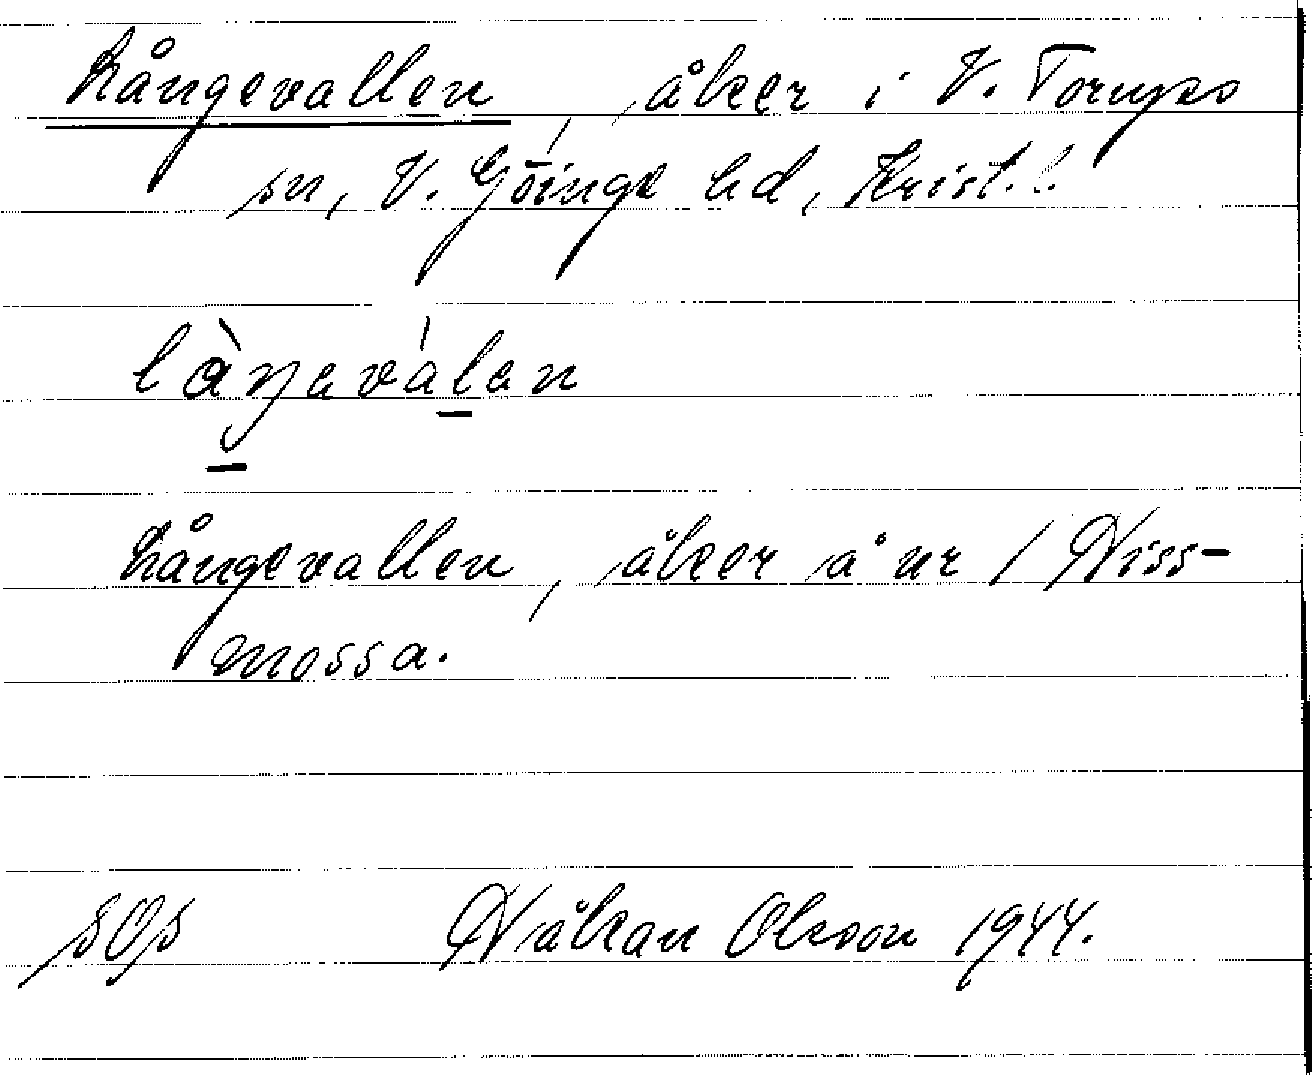 Långevallen, åker i V. Torups
sn, V. Göinge hd, Krist. l.
låŋavàlan
Långevallen, åker å nr 1 Hiss-
mossa.
SOs Håkan Olsson 1944.